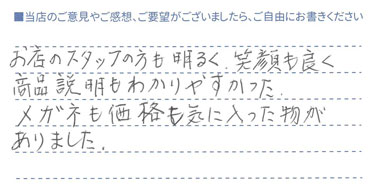 ■当店のご意見やご感想、ご要望がございましたら、ご自由にお書きください
お店のスタッフの方も明るく、笑顔も良く
商品説明もわかりやすかった。
メガネも価格も気に入った物が
ありました。